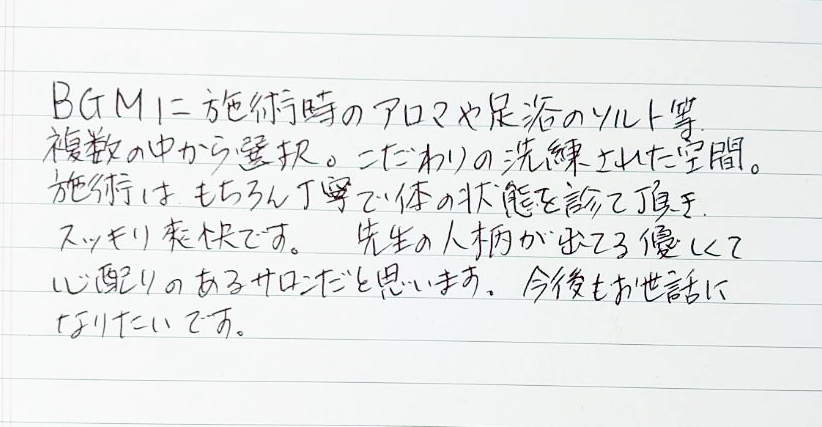 BGMに施術時のアロマや足浴のソルト等
複数の中から選択。こだわりの洗練された空間。
施術は もちろん丁寧で体の状態を診て頂き
スッキリ爽快です。 先生の人柄が出てる優しくて
心配りのあるサロンだと思います。今後もお世話に
なりたいです。